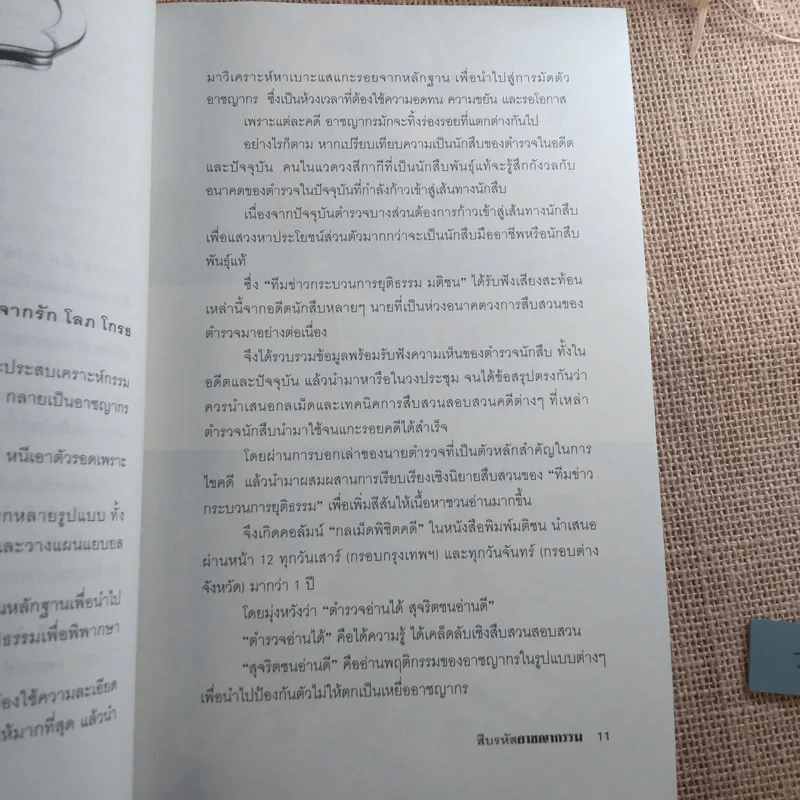 จากรัก โลภ โกรธ
ะประสบเคราะห์กรรม
กลายเป็นอาชญากร
หนีเอาตัวรอดเพราะ
กหลายรูปแบบ ทั้ง
และวางแผนแยบยล
นหลักฐานเพื่อนำไป
ธรรมเพื่อพิพากษา
องใช้ความละเอียด
ห้มากที่สุด แล้วนำ
มาวิเคราะห์หาเบาะแสแกะรอยจากหลักฐาน เพื่อนำไปสู่การมัดตัว
อาชญากร ซึ่งเป็นห้วงเวลาที่ต้องใช้ความอดทน ความขยัน และรอโอกาส
เพราะแต่ละคดี อาชญากรมักจะทิ้งร่องรอยที่แตกต่างกันไป
อย่างไรก็ตาม หากเปรียบเทียบความเป็นนักสืบของตำรวจในอดีต
และปัจจุบัน คนในแวดวงสีกากีที่เป็นนักสืบพันธุ์แท้จะรู้สึกกังวลกับ
อนาคตของตำรวจในปัจจุบันที่กำลังก้าวเข้าสู่เส้นทางนักสืบ
เนื่องจากปัจจุบันตำรวจบางส่วนต้องการก้าวเข้าสู่เส้นทางนักสืบ
เพื่อแสวงหาประโยชน์ส่วนตัวมากกว่าจะเป็นนักสืบมืออาชีพหรือนักสืบ
พันธุ์แท้
ซึ่ง “ทีมข่าวกระบวนการยุติธรรม มติชน” ได้รับฟังเสียงสะท้อน
เหล่านี้จากอดีตนักสืบหลายๆ นายที่เป็นห่วงอนาคตวงการสืบสวนของ
ตำรวจมาอย่างต่อเนื่อง
จึงได้รวบรวมข้อมูลพร้อมรับฟังความเห็นของตำรวจนักสืบ ทั้งใน
อดีตและปัจจุบัน แล้วนำมาหารือในวงประชุม จนได้ข้อสรุปตรงกันว่า
ควรนำเสนอกลเม็ดและเทคนิคการสืบสวนสอบสวนคดีต่างๆ ที่เหล่า
ตำรวจนักสืบนำมาใช้จนแกะรอยคดีได้สำเร็จ
โดยผ่านการบอกเล่าของนายตำรวจที่เป็นตัวหลักสำคัญในการ
ไขคดี แล้วนำมาผสมผสานการเรียบเรียงเชิงนิยายสืบสวนของ “ทีมข่าว
กระบวนการยุติธรรม” เพื่อเพิ่มสีสันให้เนื้อหาชวนอ่านมากขึ้น
จึงเกิดคอลัมน์ “กลเม็ดพิชิตคดี” ในหนังสือพิมพ์มติชน นำเสนอ
ผ่านหน้า 12 ทุกวันเสาร์ (กรอบกรุงเทพฯ) และทุกวันจันทร์ (กรอบต่าง
จังหวัด) มากว่า 1 ปี
โดยมุ่งหวังว่า “ตำรวจอ่านได้ สุจริตชนอ่านดี”
“ตำรวจอ่านได้” คือได้ความรู้ ได้เคล็ดลับเชิงสืบสวนสอบสวน
“สุจริตชนอ่านดี” คืออ่านพฤติกรรมของอาชญากรในรูปแบบต่างๆ
เพื่อนำไปป้องกันตัวไม่ให้ตกเป็นเหยื่ออาชญากร
สืบรหัสอาชญากรรม 11